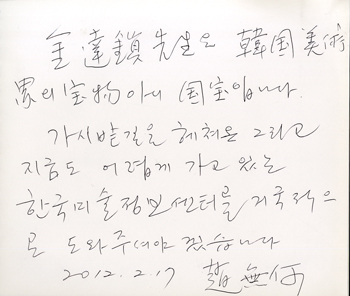 金達鎮先生은 韓国美術
界의 宝物아니 国宝입니다.
가시밭길을 헤쳐온 그리고
지금도 어렵게 가고 있는
한국미술정보센터를 거국적으
로 도와주셔야 겠습니다
2012. 2. 17 趙無何